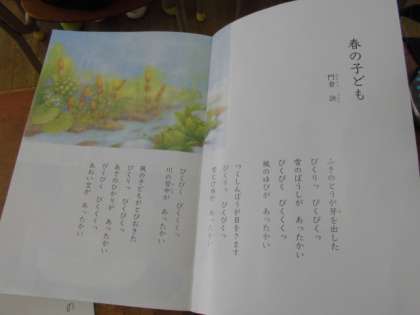 春の子ども
門倉 詇
ふきのとうが芽を出した
ぴくりっ ぴくぴくっ
雪のぼうしが あったかい
ぴくぴく ぴくくくっ
風のゆびが あったかい
つくしんぼうが目をさます
ぴくりっ ぴくぴくっ
ぴくぴく ぴくくくっ
川の音やが あったかい
風の子どもがとびおきた
ぴくりっ ぴくぴくっ
あさのひかりが あったかい
ぴくぴく ぴくくくっ
あおい空が あったかい